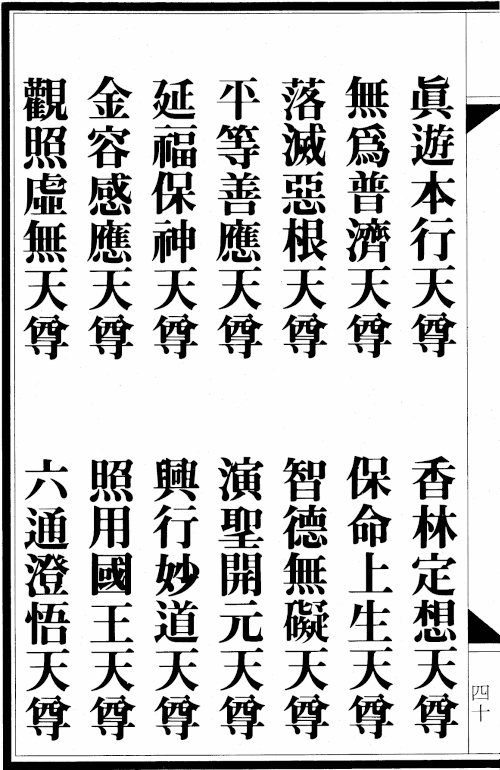 眞遊本行天尊
香林定想天尊
無爲普濟天尊
保命上生天尊
落滅惡根天尊
智德無礙天尊
平等善應天尊
演聖開元天尊
延福保神天尊
興行妙道天尊
金容感應天尊
照用國王天尊
觀照虛無天尊
六通澄悟天尊
四十